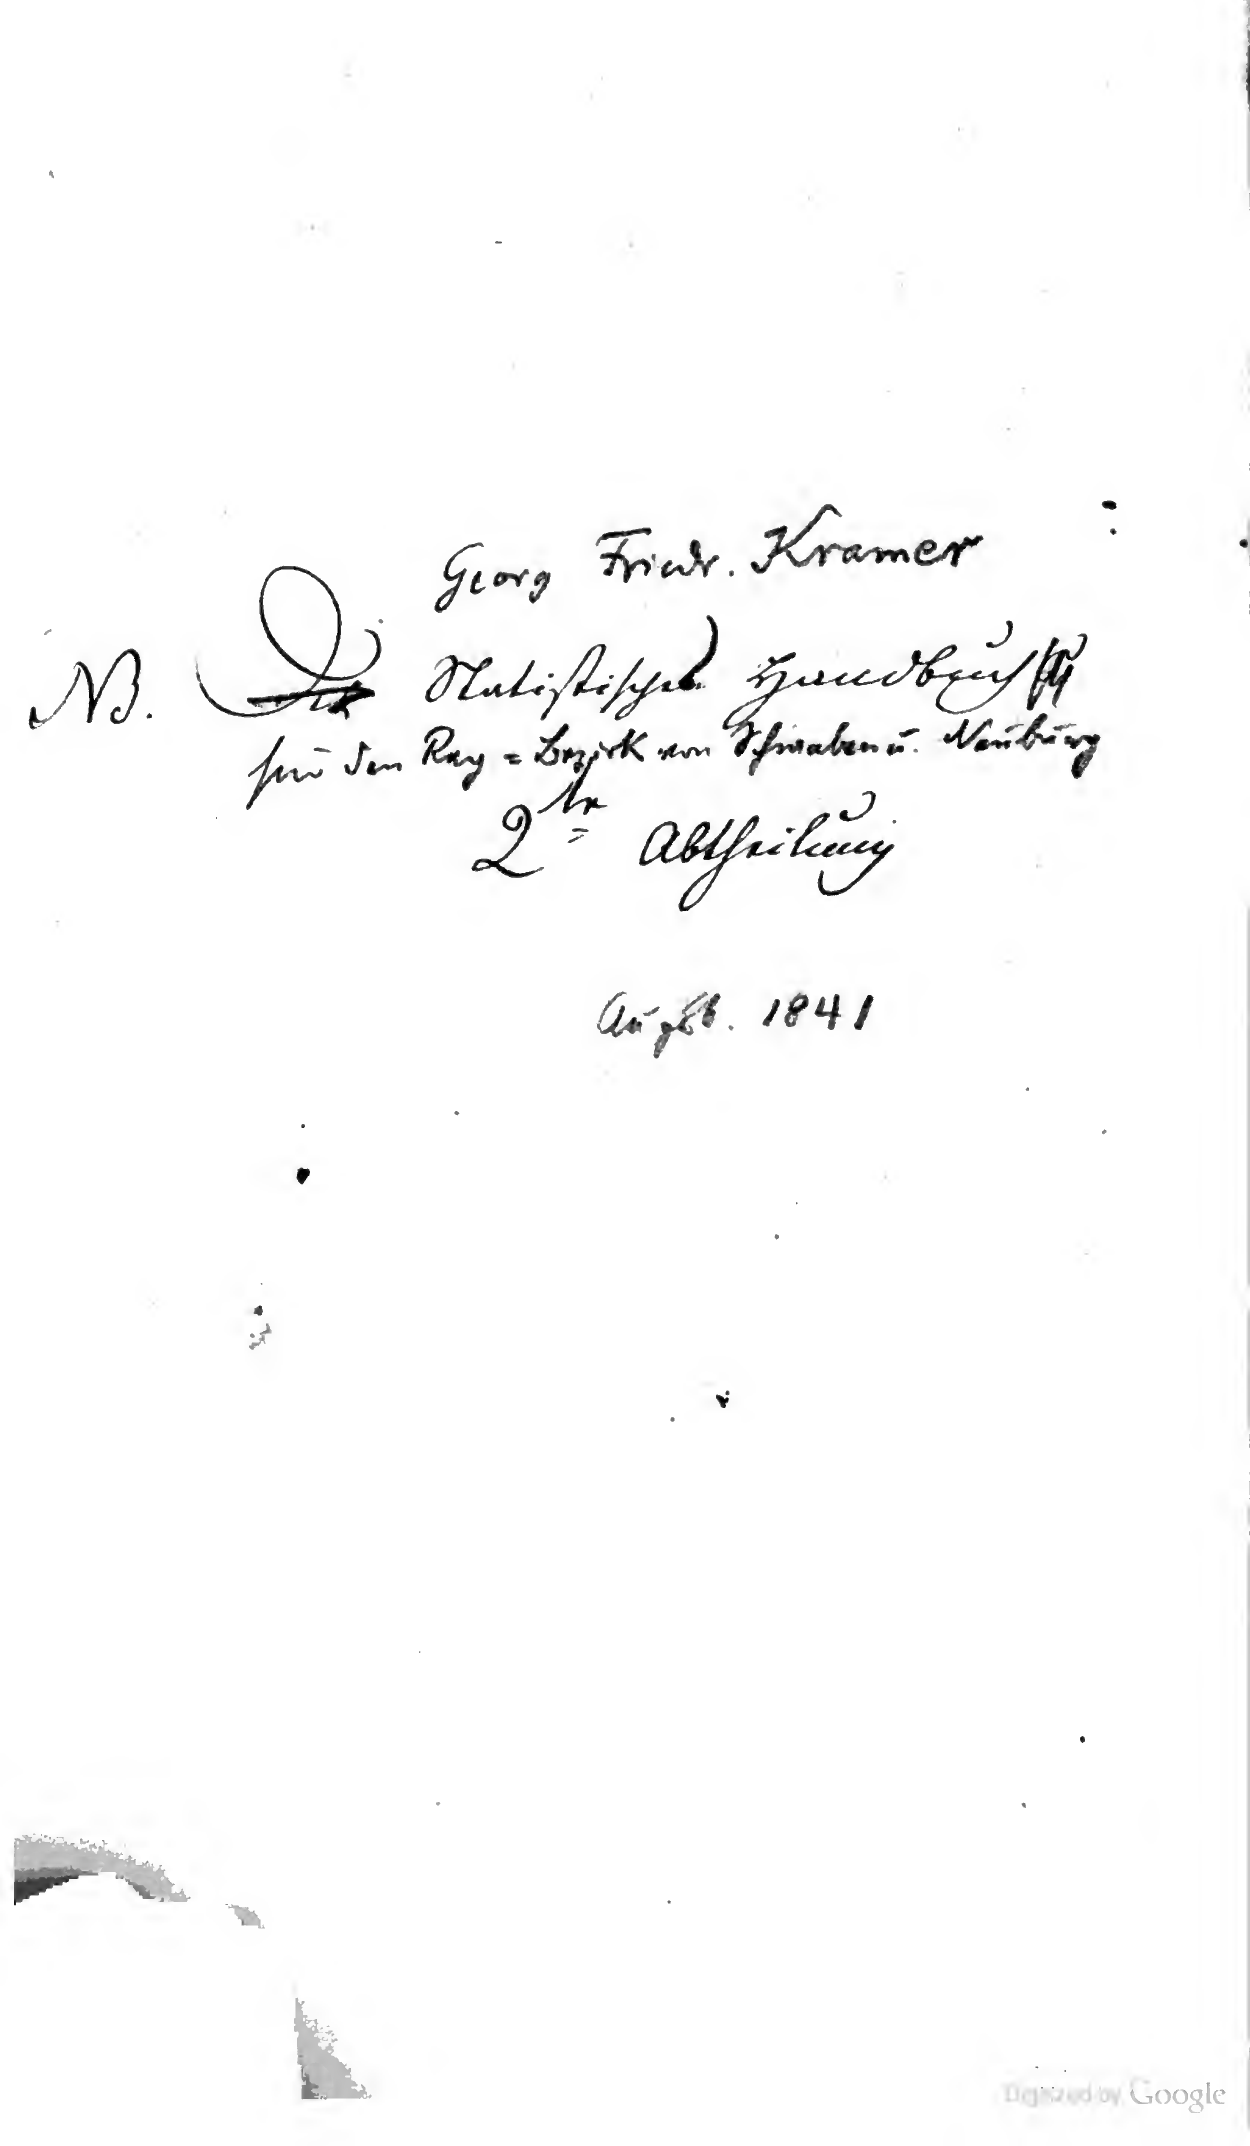 Georg Friedr. Kramer
NB. Statistisches Handbuch
für den Reg = Bezirk von Schwaben u. Neuburg
2te Abtheilung
Augsb. 1841
Digitized by Google